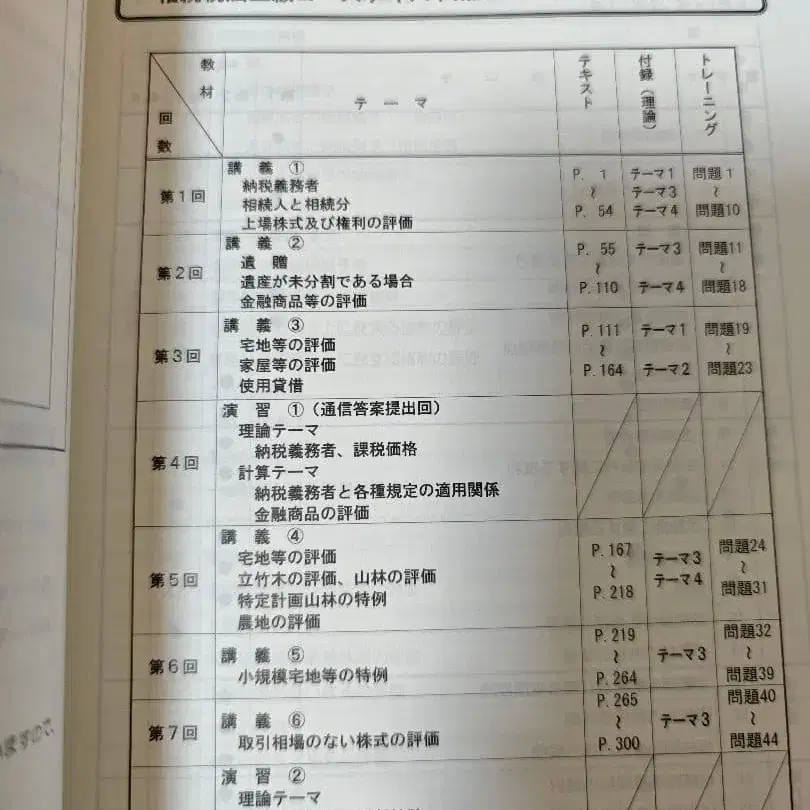 教材
回数
テーマ
テキスト
付録(理論)
トレーニング
第1回
講義 ①
納税義務者
相続人と相続分
上場株式及び権利の評価
P. 1 ~ P. 54
テーマ1 テーマ3 テーマ4
問題1 ~ 問題10
第2回
講義 ②
遺贈
遺産が未分割である場合
金融商品等の評価
P. 55 ~ P.110
テーマ3 テーマ4
問題11 ~ 問題18
第3回
講義 ③
宅地等の評価
家屋等の評価
使用貸借
P.111 ~ P.164
テーマ1 テーマ2
問題19 ~ 問題23
第4回
演習 ①(通信答案提出回)
理論テーマ
納税義務者、課税価格
計算テーマ
納税義務者と各種規定の適用関係
金融商品の評価
第5回
講義 ④
宅地等の評価
立竹木の評価、山林の評価
特定計画山林の特例
農地の評価
P.167 ~ P.218
テーマ3 テーマ4
問題24 ~ 問題31
第6回
講義 ⑤
小規模宅地等の特例
P.219 ~ P.264
テーマ3
問題32 ~ 問題39
第7回
講義 ⑥
取引相場のない株式の評価
P.265 ~ P.300
テーマ3
問題40 ~ 問題44
演習 ②
理論テーマ
ますので、